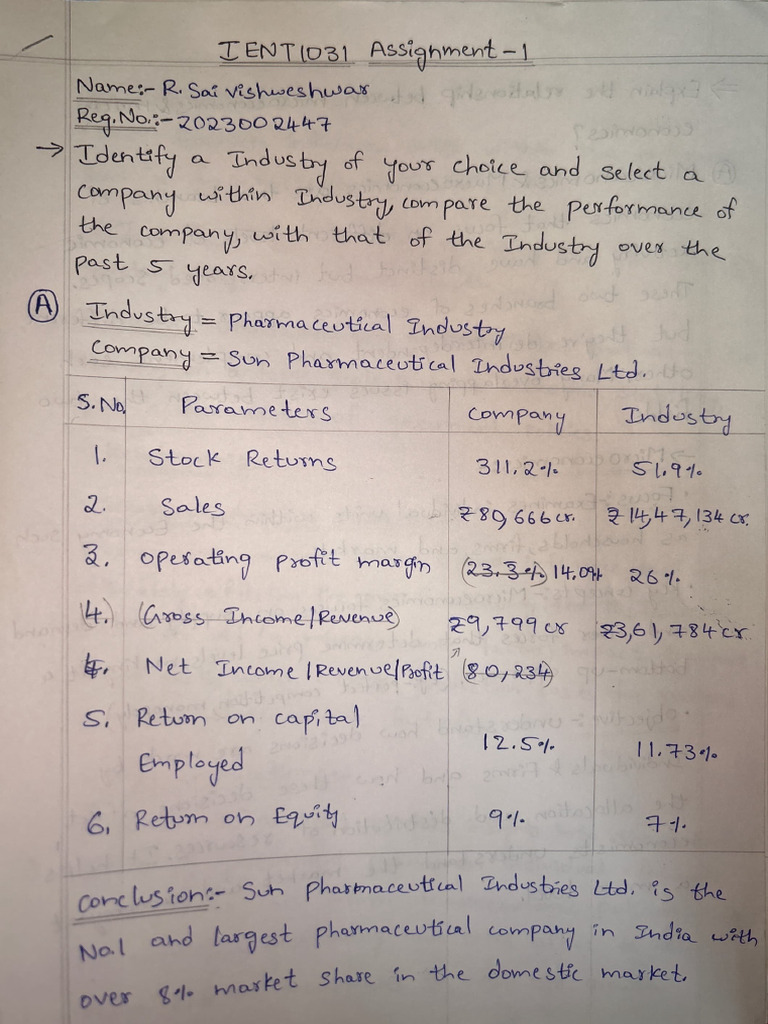 IENT1031 Assignment-1
Name:- R. Sai Vishweshwar
Reg.No.:- 2023002447
→ Identify a Industry of your choice and select a
company within Industry, compare the performance of
the company, with that of the Industry over the
past 5 years.
(A) Industry = Pharmaceutical Industry
Company = Sun Pharmaceutical Industries Ltd.
S.No. Parameters Company Industry
1. Stock Returns 311.2% 51.9%
2. Sales ₹80,666 cr. ₹14,47,134 cr.
3. Operating profit margin (23.3%) 14.0% 26%
(4.) (Gross Income/Revenue) ₹9,799 cr ₹3,61,784 cr.
4. Net Income/Revenue/Profit (80,234)
5. Return on capital
Employed 12.5% 11.73%
6. Return on Equity 9% 7%
Conclusion:- Sun Pharmaceutical Industries Ltd. is the
No.1 and largest pharmaceutical company in India with
over 8% market share in the domestic market.